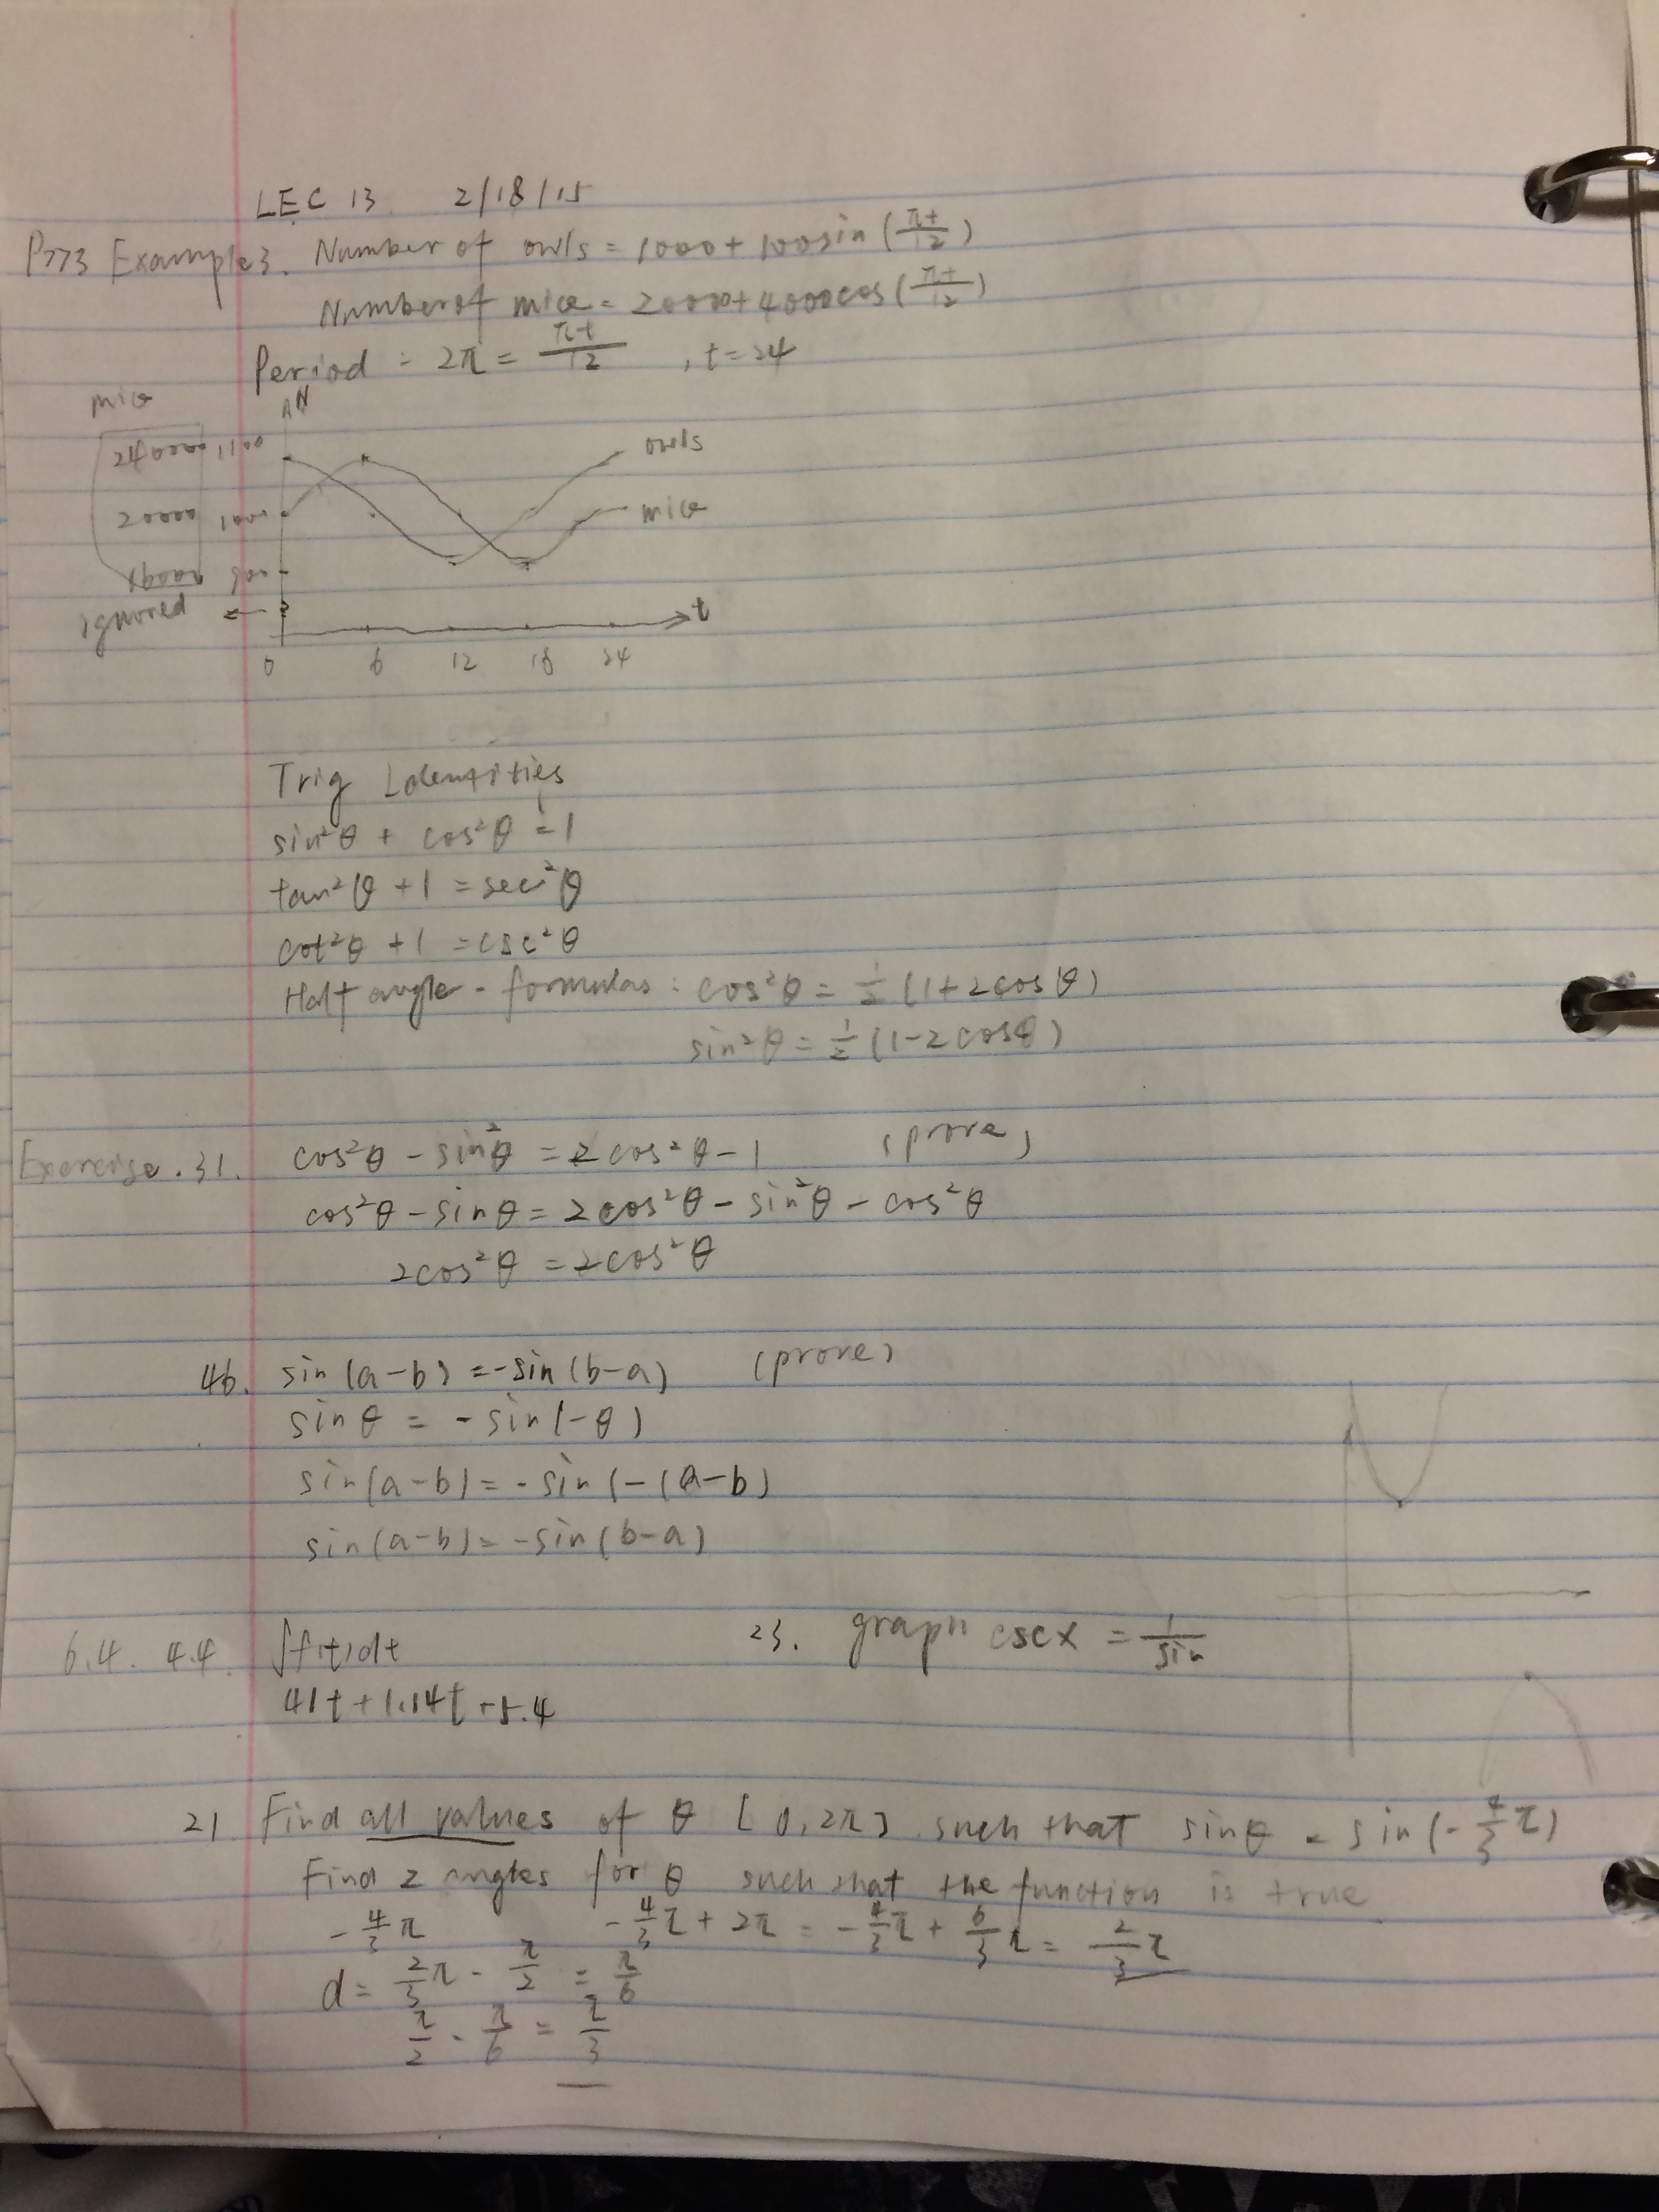 LEC 13 2/18/15
P773 Example 3. Number of owls = 1000 + 100sin(πt/12)
Number of mice = 20000 + 4000cos(πt/12)
Period = 2π = πt/12 , t = 24
mice
N
24000 1100 owls
20000 1000 mice
16000 900
ignored
t
0 6 12 18 24
Trig Identities
sin²θ + cos²θ = 1
tan²θ + 1 = sec²θ
cot²θ + 1 = csc²θ
Half angle - formulas : cos²θ = ½ (1+2cosθ)
sin²θ = ½ (1-2cosθ)
Exercise. 31. cos²θ - sin²θ = 2cos²θ - 1 (prove)
cos²θ - sinθ = 2cos²θ - sin²θ - cos²θ
2cos²θ = 2cos²θ
46. sin(a-b) = -sin(b-a) (prove)
sinθ = - sin(-θ)
sin(a-b) = - sin(-(a-b)
sin(a-b) = -sin(b-a)
6.4. 44. ∫f(t)dt 23. graph cscx = 1/sin
41t + 1.14t + 5.4
21 Find all values of θ [0, 2π] such that sinθ = sin(-4/3π)
Find 2 angles for θ such that the function is true
-4/3π -4/3π + 2π = -4/3π + 6/3π = 2/3π
d = 2/3π - π/2 = π/6
π/2 - π/6 = π/3